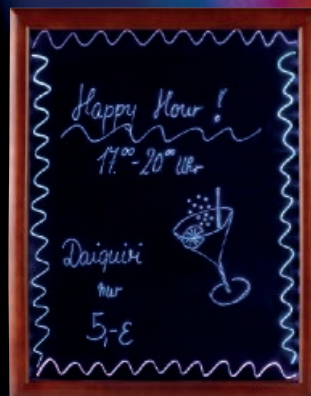 Happy Hour !
17.⁰⁰-20⁰⁰ Uhr
Daiquiri
nur
5,-€